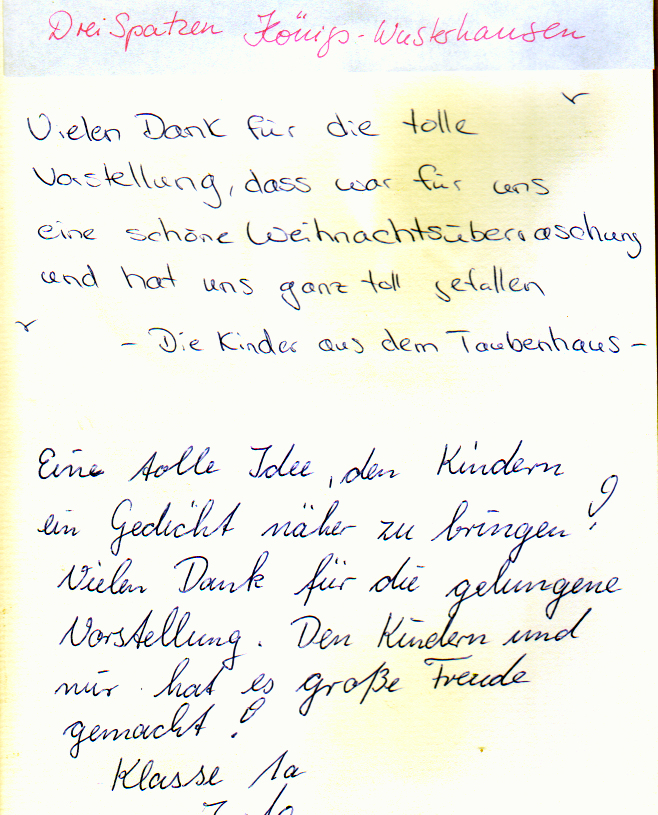 Drei Spatzen Königs-Wusterhausen
Vielen Dank für die tolle
Vorstellung, dass war für uns
eine schöne Weihnachtsüberraschung
und hat uns ganz toll gefallen
- Die Kinder aus dem Taubenhaus -
Eine tolle Idee, den Kindern
ein Gedicht näher zu bringen!
Vielen Dank für die gelungene
Vorstellung. Den Kindern und
mir hat es große Freude
gemacht!
Klasse 1a